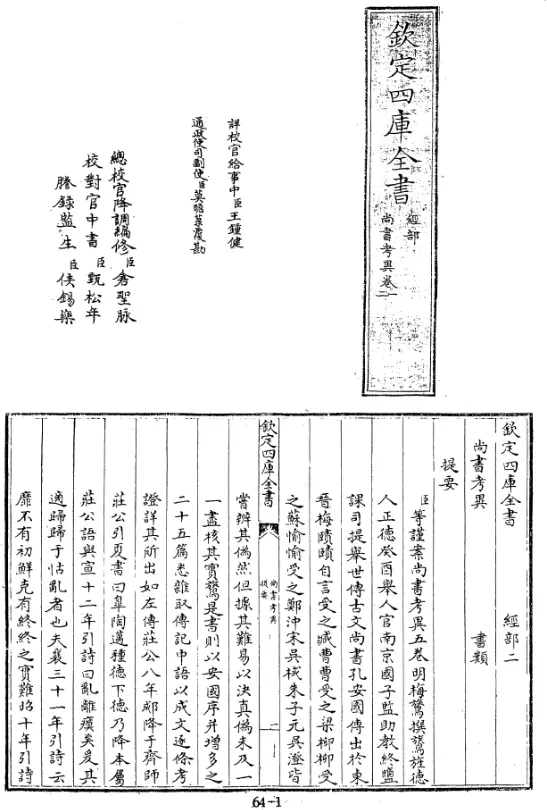 欽定四庫全書
經部
尚書考異卷
詳校官給事中臣王鍾健
通政使司副使臣莫瞻菉覆勘
總校官降調編修臣倉聖脈
校對官中書臣甄松年
謄錄監生臣侯錫
欽定四庫全書 經部二
尚書考異 書類
提要
臣等謹案尚書考異五卷明梅鷟撰鷟旌德
人正德癸酉舉人官南京國子監助教終鹽
課司提舉世傳古文尚書孔安國傳出於東
晉梅賾賾自言受之臧曹曹受之梁柳柳受
之蘇愉愉受之鄭沖宋吳棫朱子元吳澄皆
欽定四庫全書
尚書考異
提要
嘗辨其偽然但據其難易以決真偽未及一
一盡核其實鷟是書則以安國序并增多之
二十五篇悉雜取傳記中語以成文逐條考
證詳其所出如左傳莊公八年郕降于齊師
莊公引夏書曰臯陶邁種德下德乃降本屬
莊公語與宣十二年引詩曰亂離瘼矣爰其
適歸歸于怙亂者也夫襄三十一年引詩云
靡不有初鮮克有終終之實難昭十年引詩
64-1